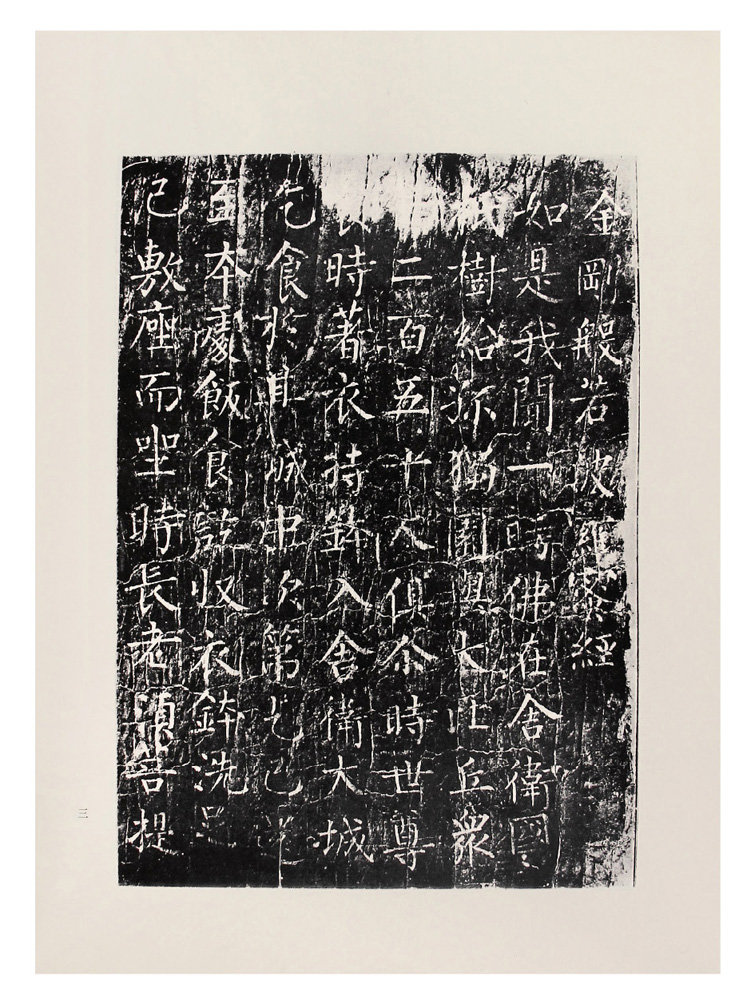 金剛般若波羅蜜經
如是我聞一時佛在舍衛國
祇樹給孤獨園與大比丘衆
二百五十人俱尒時世尊
食時著衣持鉢入舍衛大城
乞食於其城中次第乞已還
至本處飯食訖収衣鉢洗足
已敷座而坐時長老須菩提
三